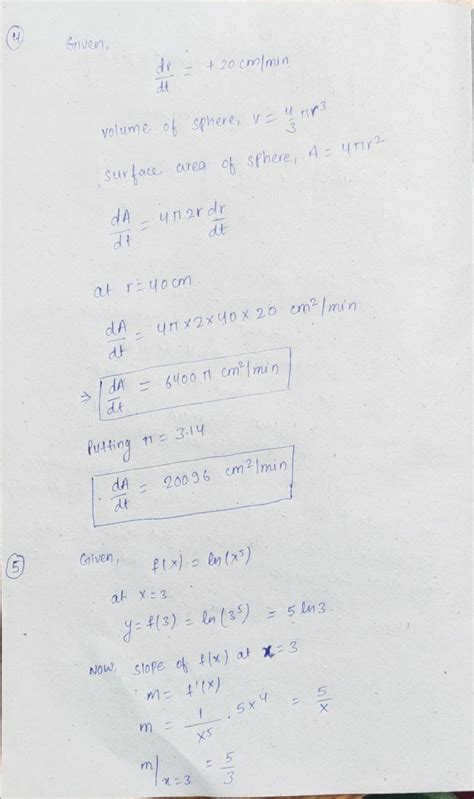 4 Given,
dr/dt = + 20 cm/min
volume of sphere, V = 4/3 πr³
surface area of sphere, A = 4πr²
dA/dt = 4π 2r dr/dt
at r = 40 cm
dA/dt = 4π × 2 × 40 × 20 cm²/min
⇒ dA/dt = 6400 π cm²/min
Putting π = 3.14
dA/dt = 20096 cm²/min
5 Given, f(x) = ln(x⁵)
at x = 3
y = f(3) = ln(3⁵) = 5 ln 3.
Now, slope of f(x) at x = 3
m = f'(x)
m = 1/x⁵ · 5x⁴ = 5/x
m|x=3 = 5/3